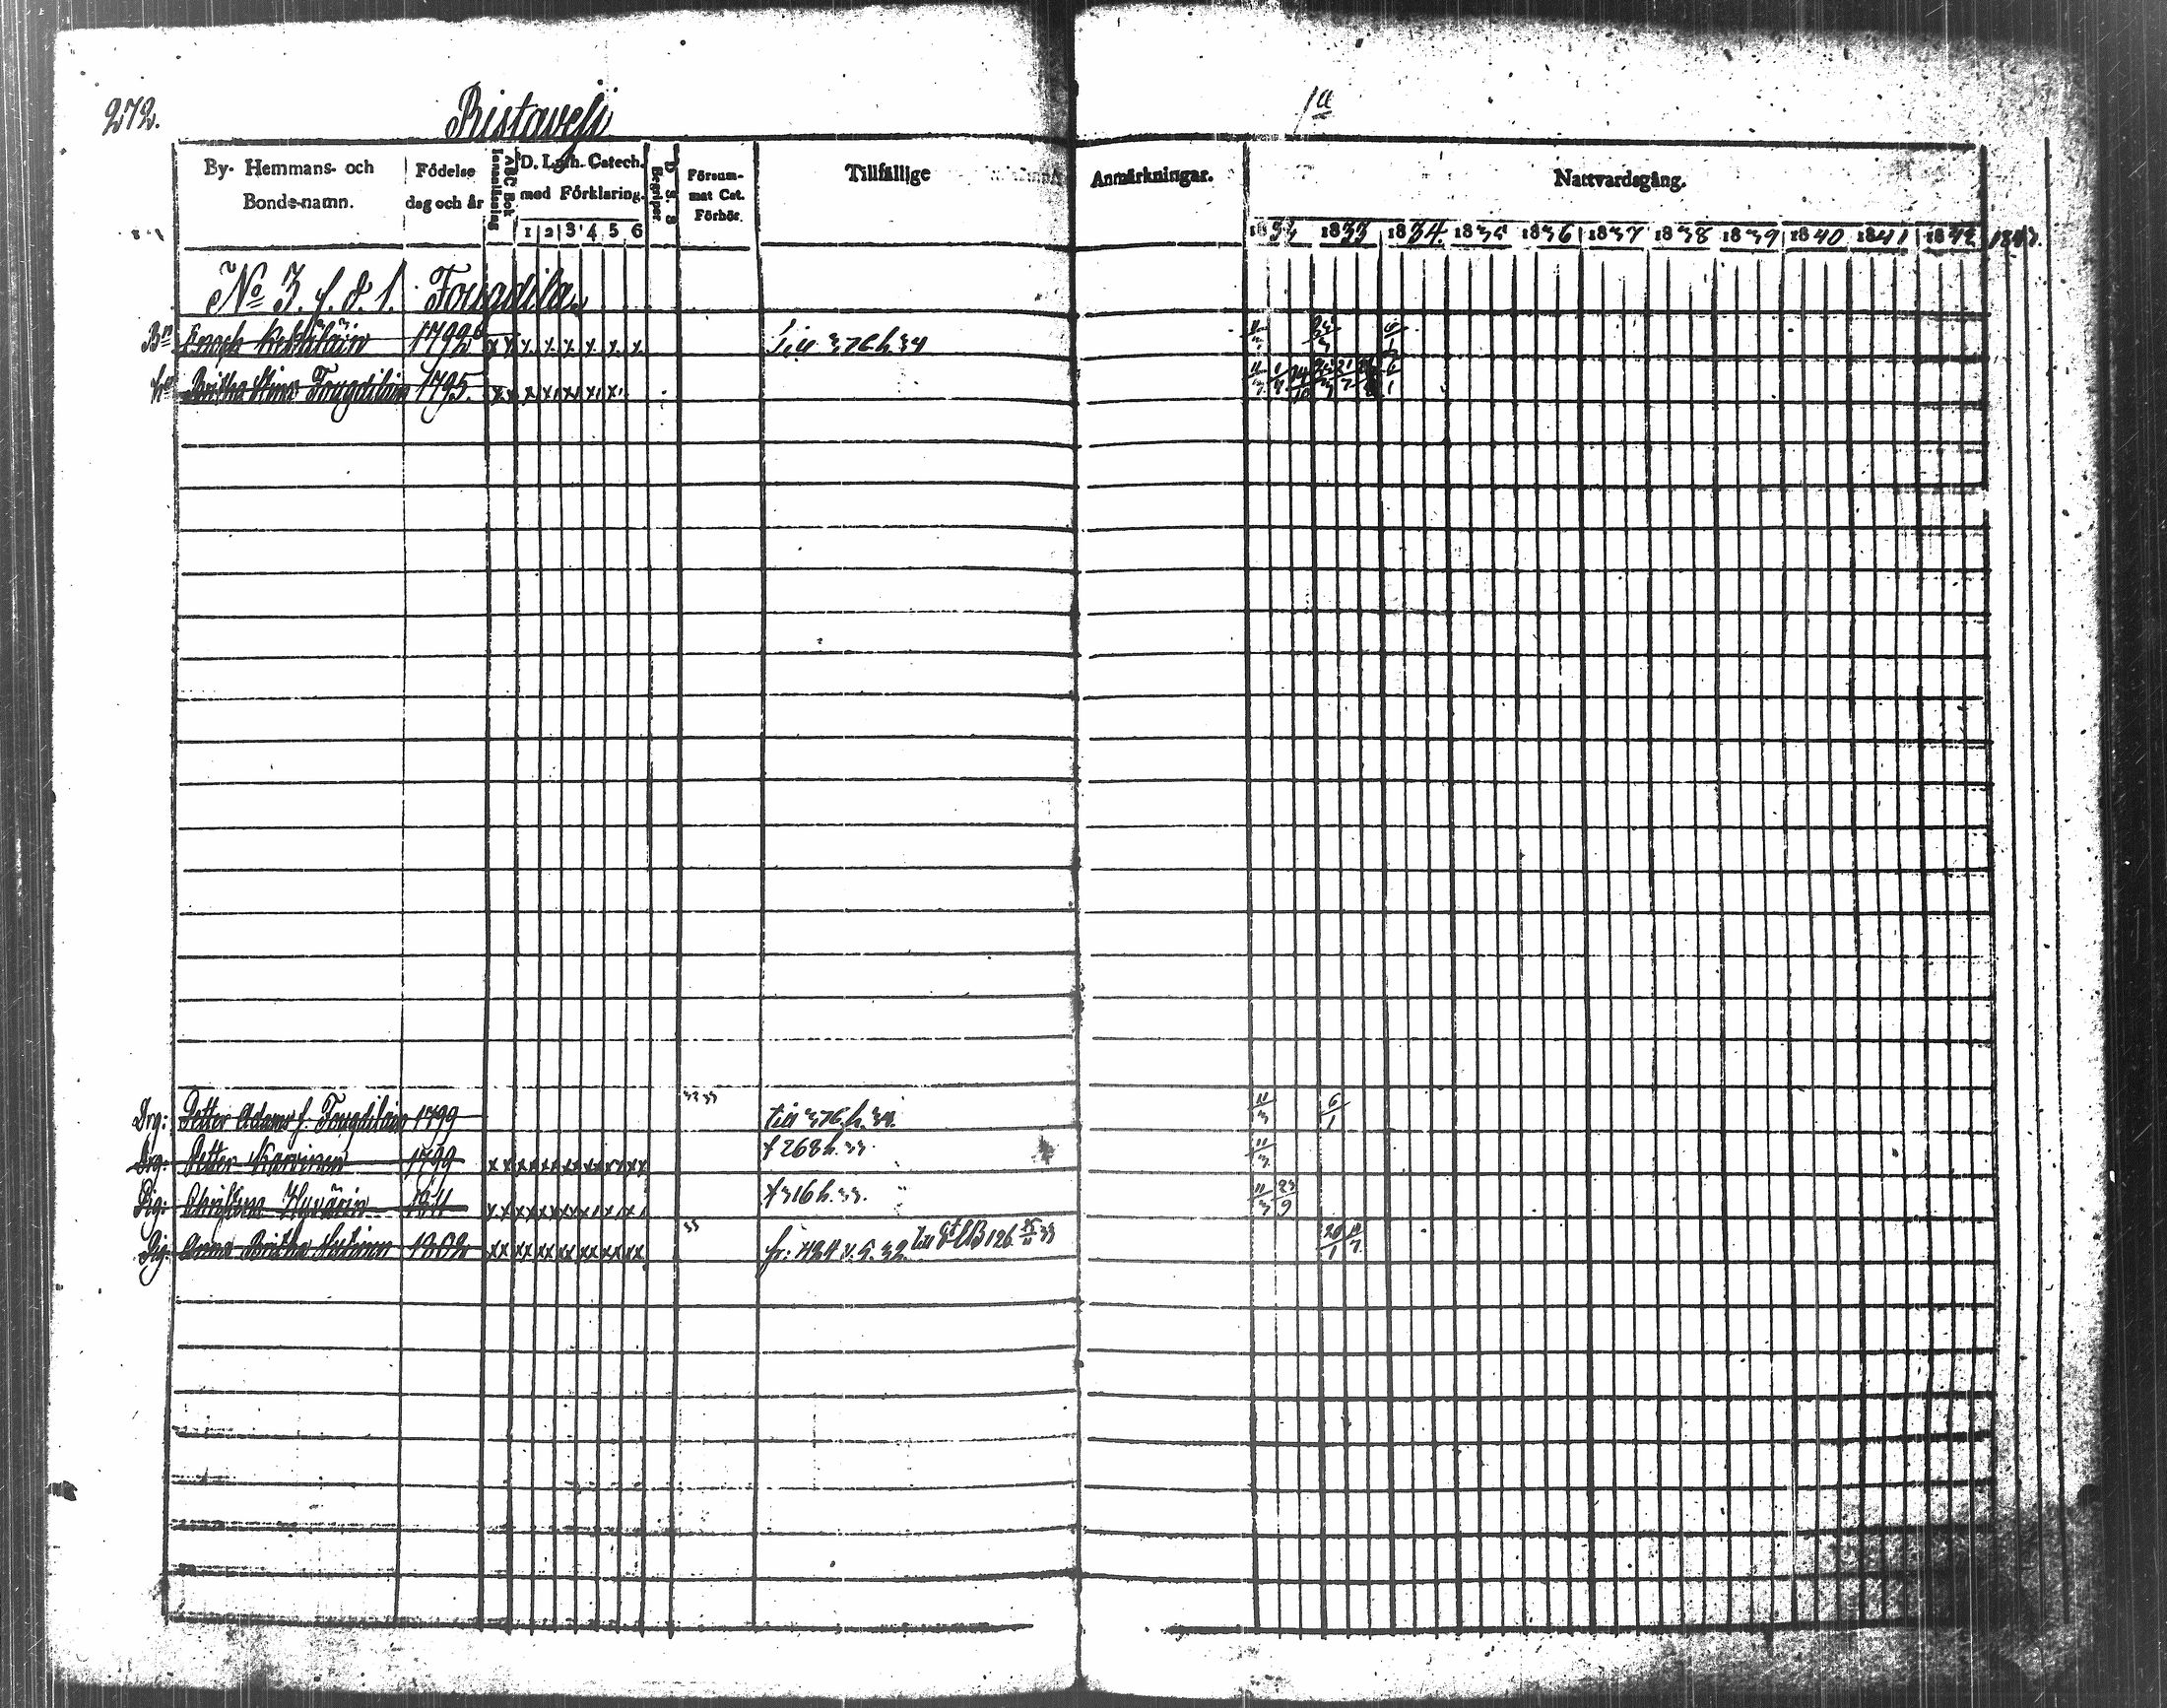 272.
Ristavesi
1a
By- Hemmans- och Bonde-namn.
Födelse dag och år
Innanläsning
ABC Bok
D. Luth. Catech. med Förklaring.
1 2 3 4 5 6
D. S. S.
Begriper.
Försum- mat Cat. Förhör.
Tillfällige
Anmärkningar.
Nattvardsgång.
1832 1833 1834. 1835 1836 1837 1838 1839 1840 1841 1842 1843.
No 3. f. d. 1. Fougdila
Bn Enoch 1792 x x x x x x x x Till 376. h. 34
Hu Britha Stina Fougdilain 1795. x x x x x x x
Drg: Petter Adams f. Fougdilain 1799 32 33 till 376. h. 34. 11/3 6/1
Drg: Petter Karvinen 1799 x x x x x x x x x x x x x x † 268 h. 33. 11/3
Pig: Christina Hyvärin 1811 x x x x x x x x x x x x x † 316 h. 33. 11/3 23/9
Pig: Anna Britha 1802 x x x x x x x x x x x x x x 33 fr: 484 v. S. 32. till 126 33 20/1